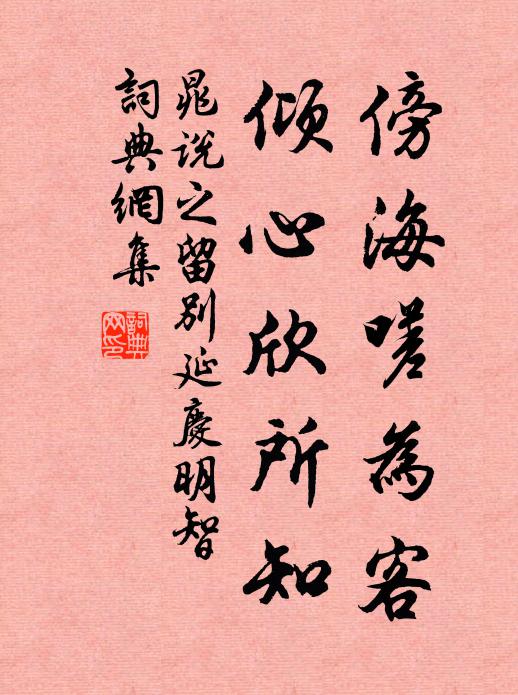 傍海嗟為客
傾心欣所知
晁説之留別延慶明智
詞典網集
詞典
网印